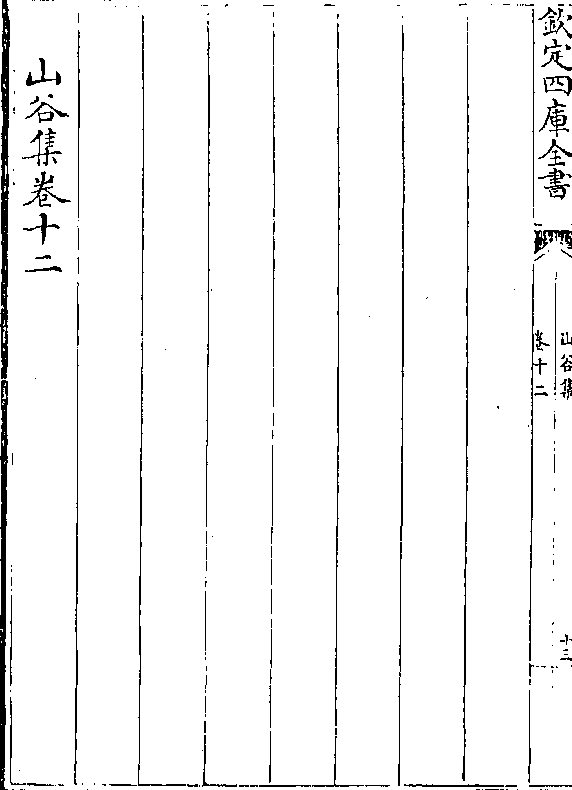 欽定四庫全書
山谷集
卷十二
十三
山谷集卷十二